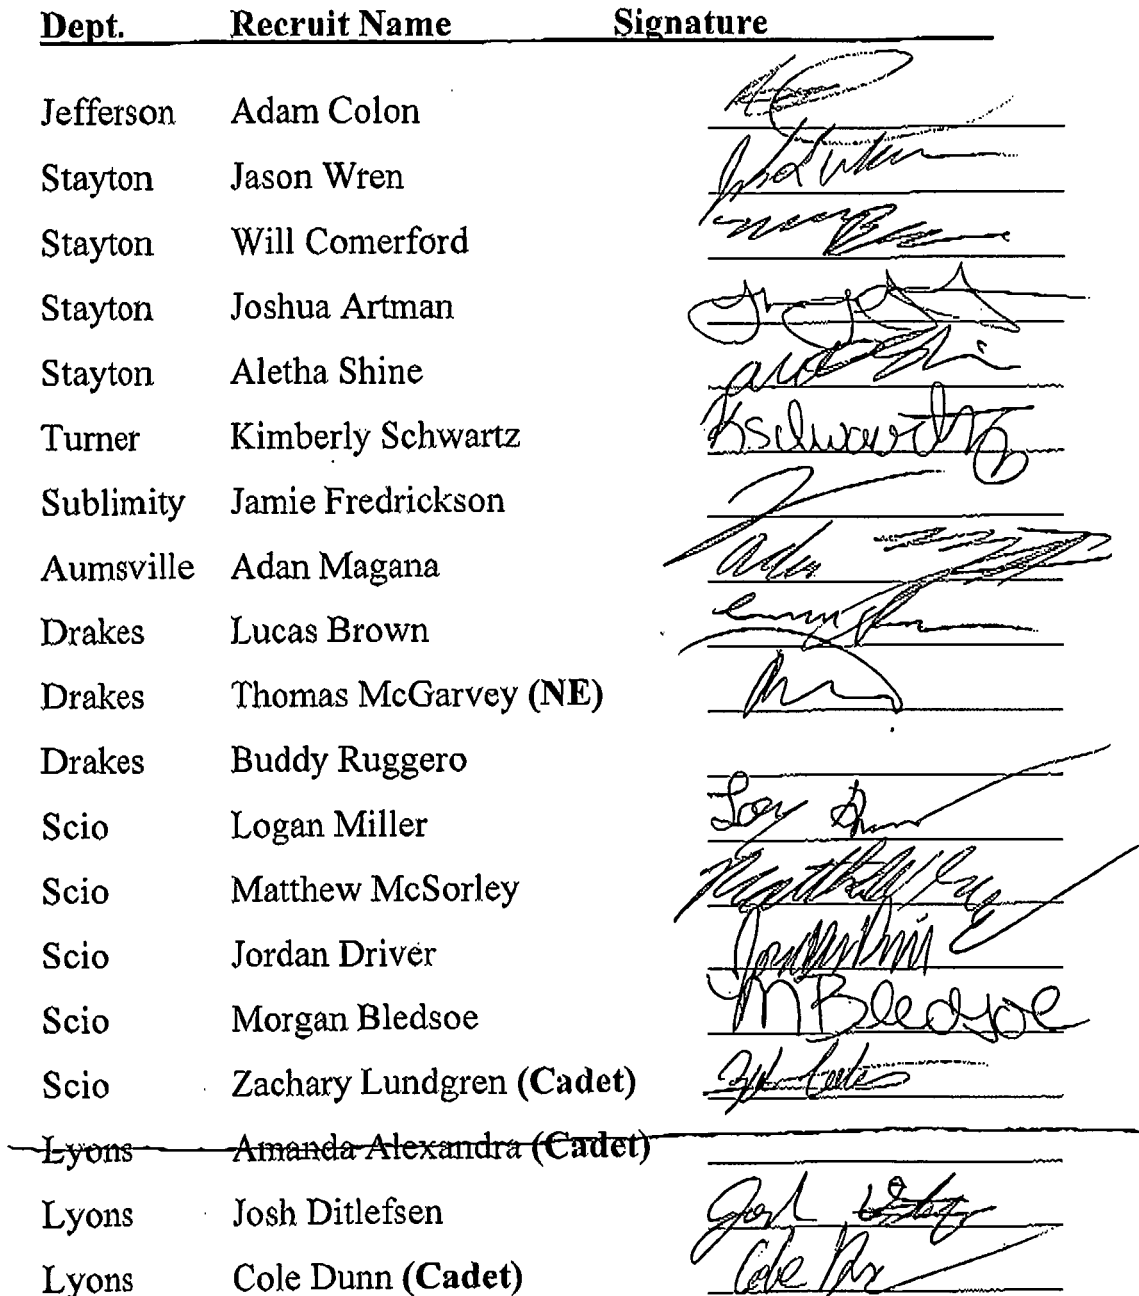 Dept. Recruit Name Signature
Jefferson Adam Colon
Stayton Jason Wren
Stayton Will Comerford
Stayton Joshua Artman
Stayton Aletha Shine
Turner Kimberly Schwartz KSchwartz
Sublimity Jamie Fredrickson
Aumsville Adan Magana Adan
Drakes Lucas Brown
Drakes Thomas McGarvey (NE)
Drakes Buddy Ruggero
Scio Logan Miller
Scio Matthew McSorley Matthew
Scio Jordan Driver Jordan
Scio Morgan Bledsoe MBledsoe
Scio Zachary Lundgren (Cadet)
Lyons Amanda Alexandra (Cadet)
Lyons Josh Ditlefsen Josh
Lyons Cole Dunn (Cadet) Cole